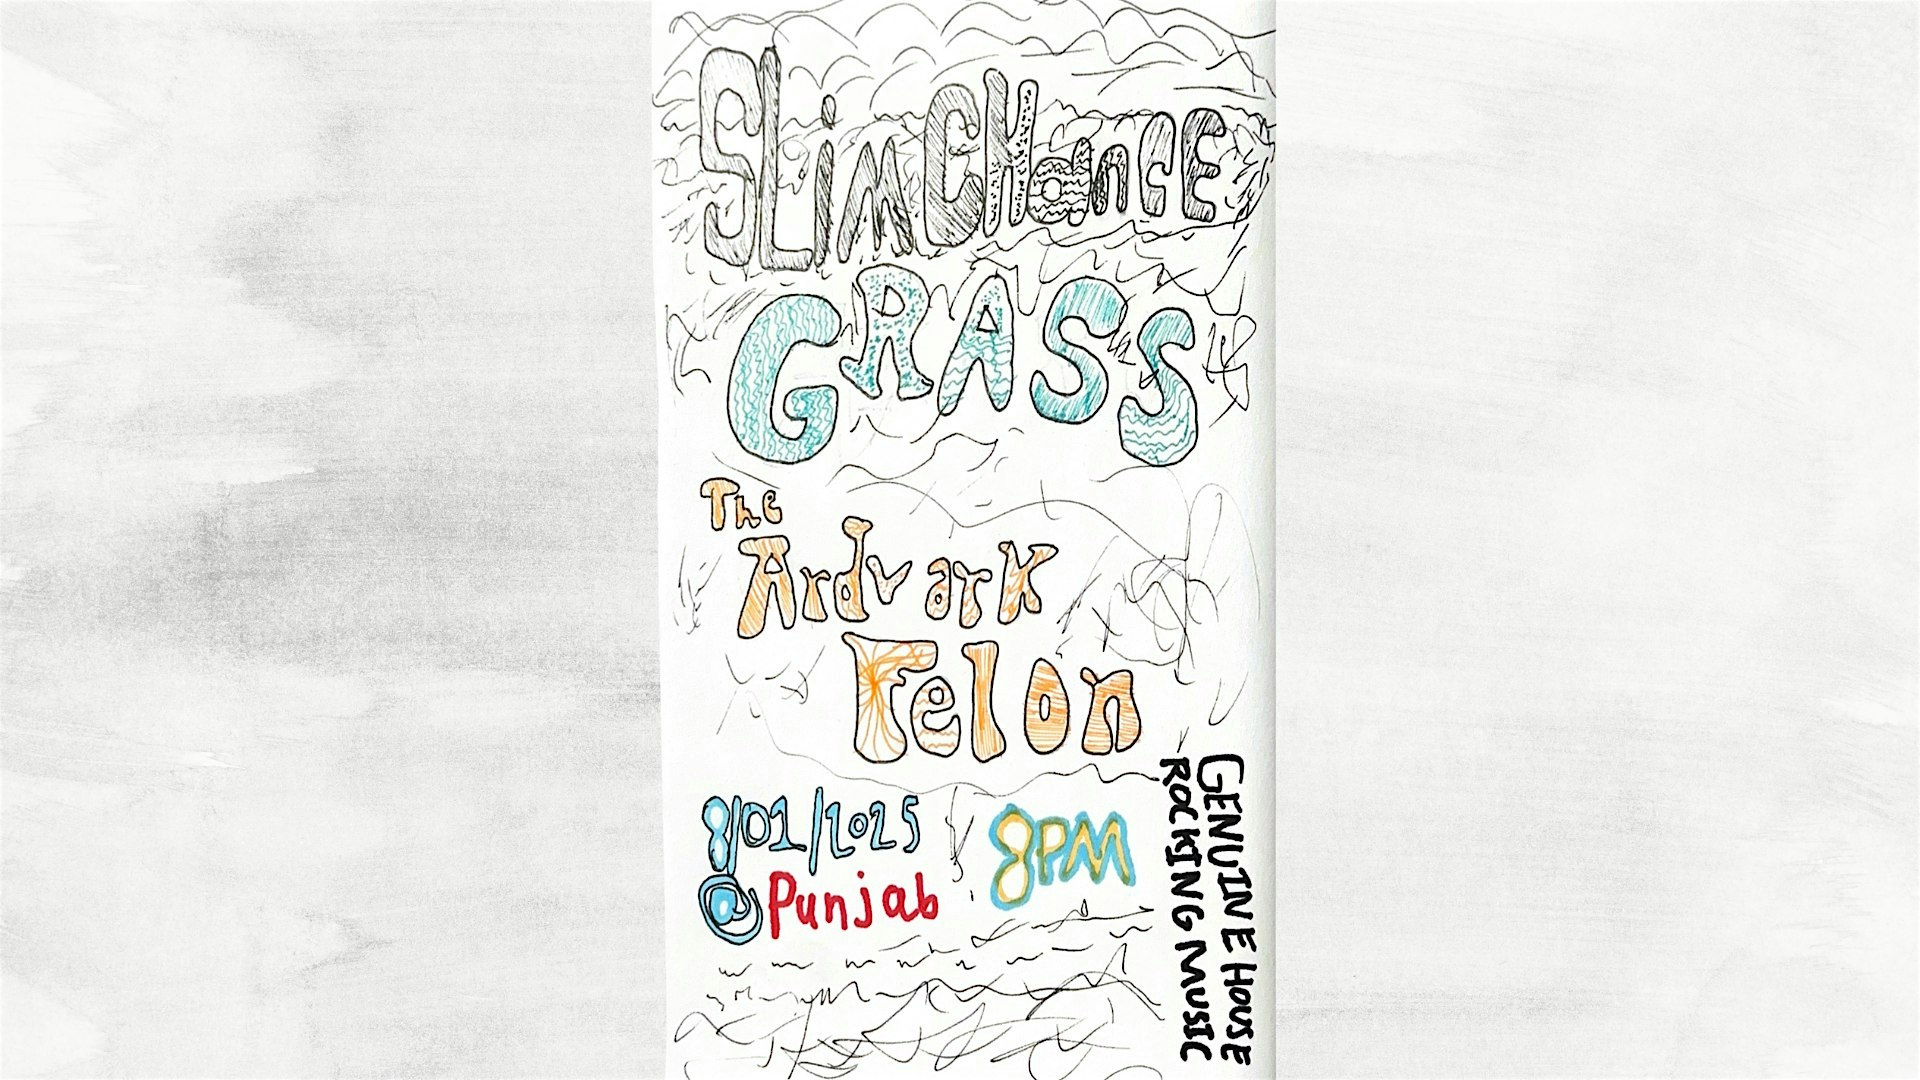 SLimCHancE
GRASS
The
Ardvark
Felon
8/01/2025
8PM
@Punjab
GENUINE HOUSE
ROCKING MUSIC